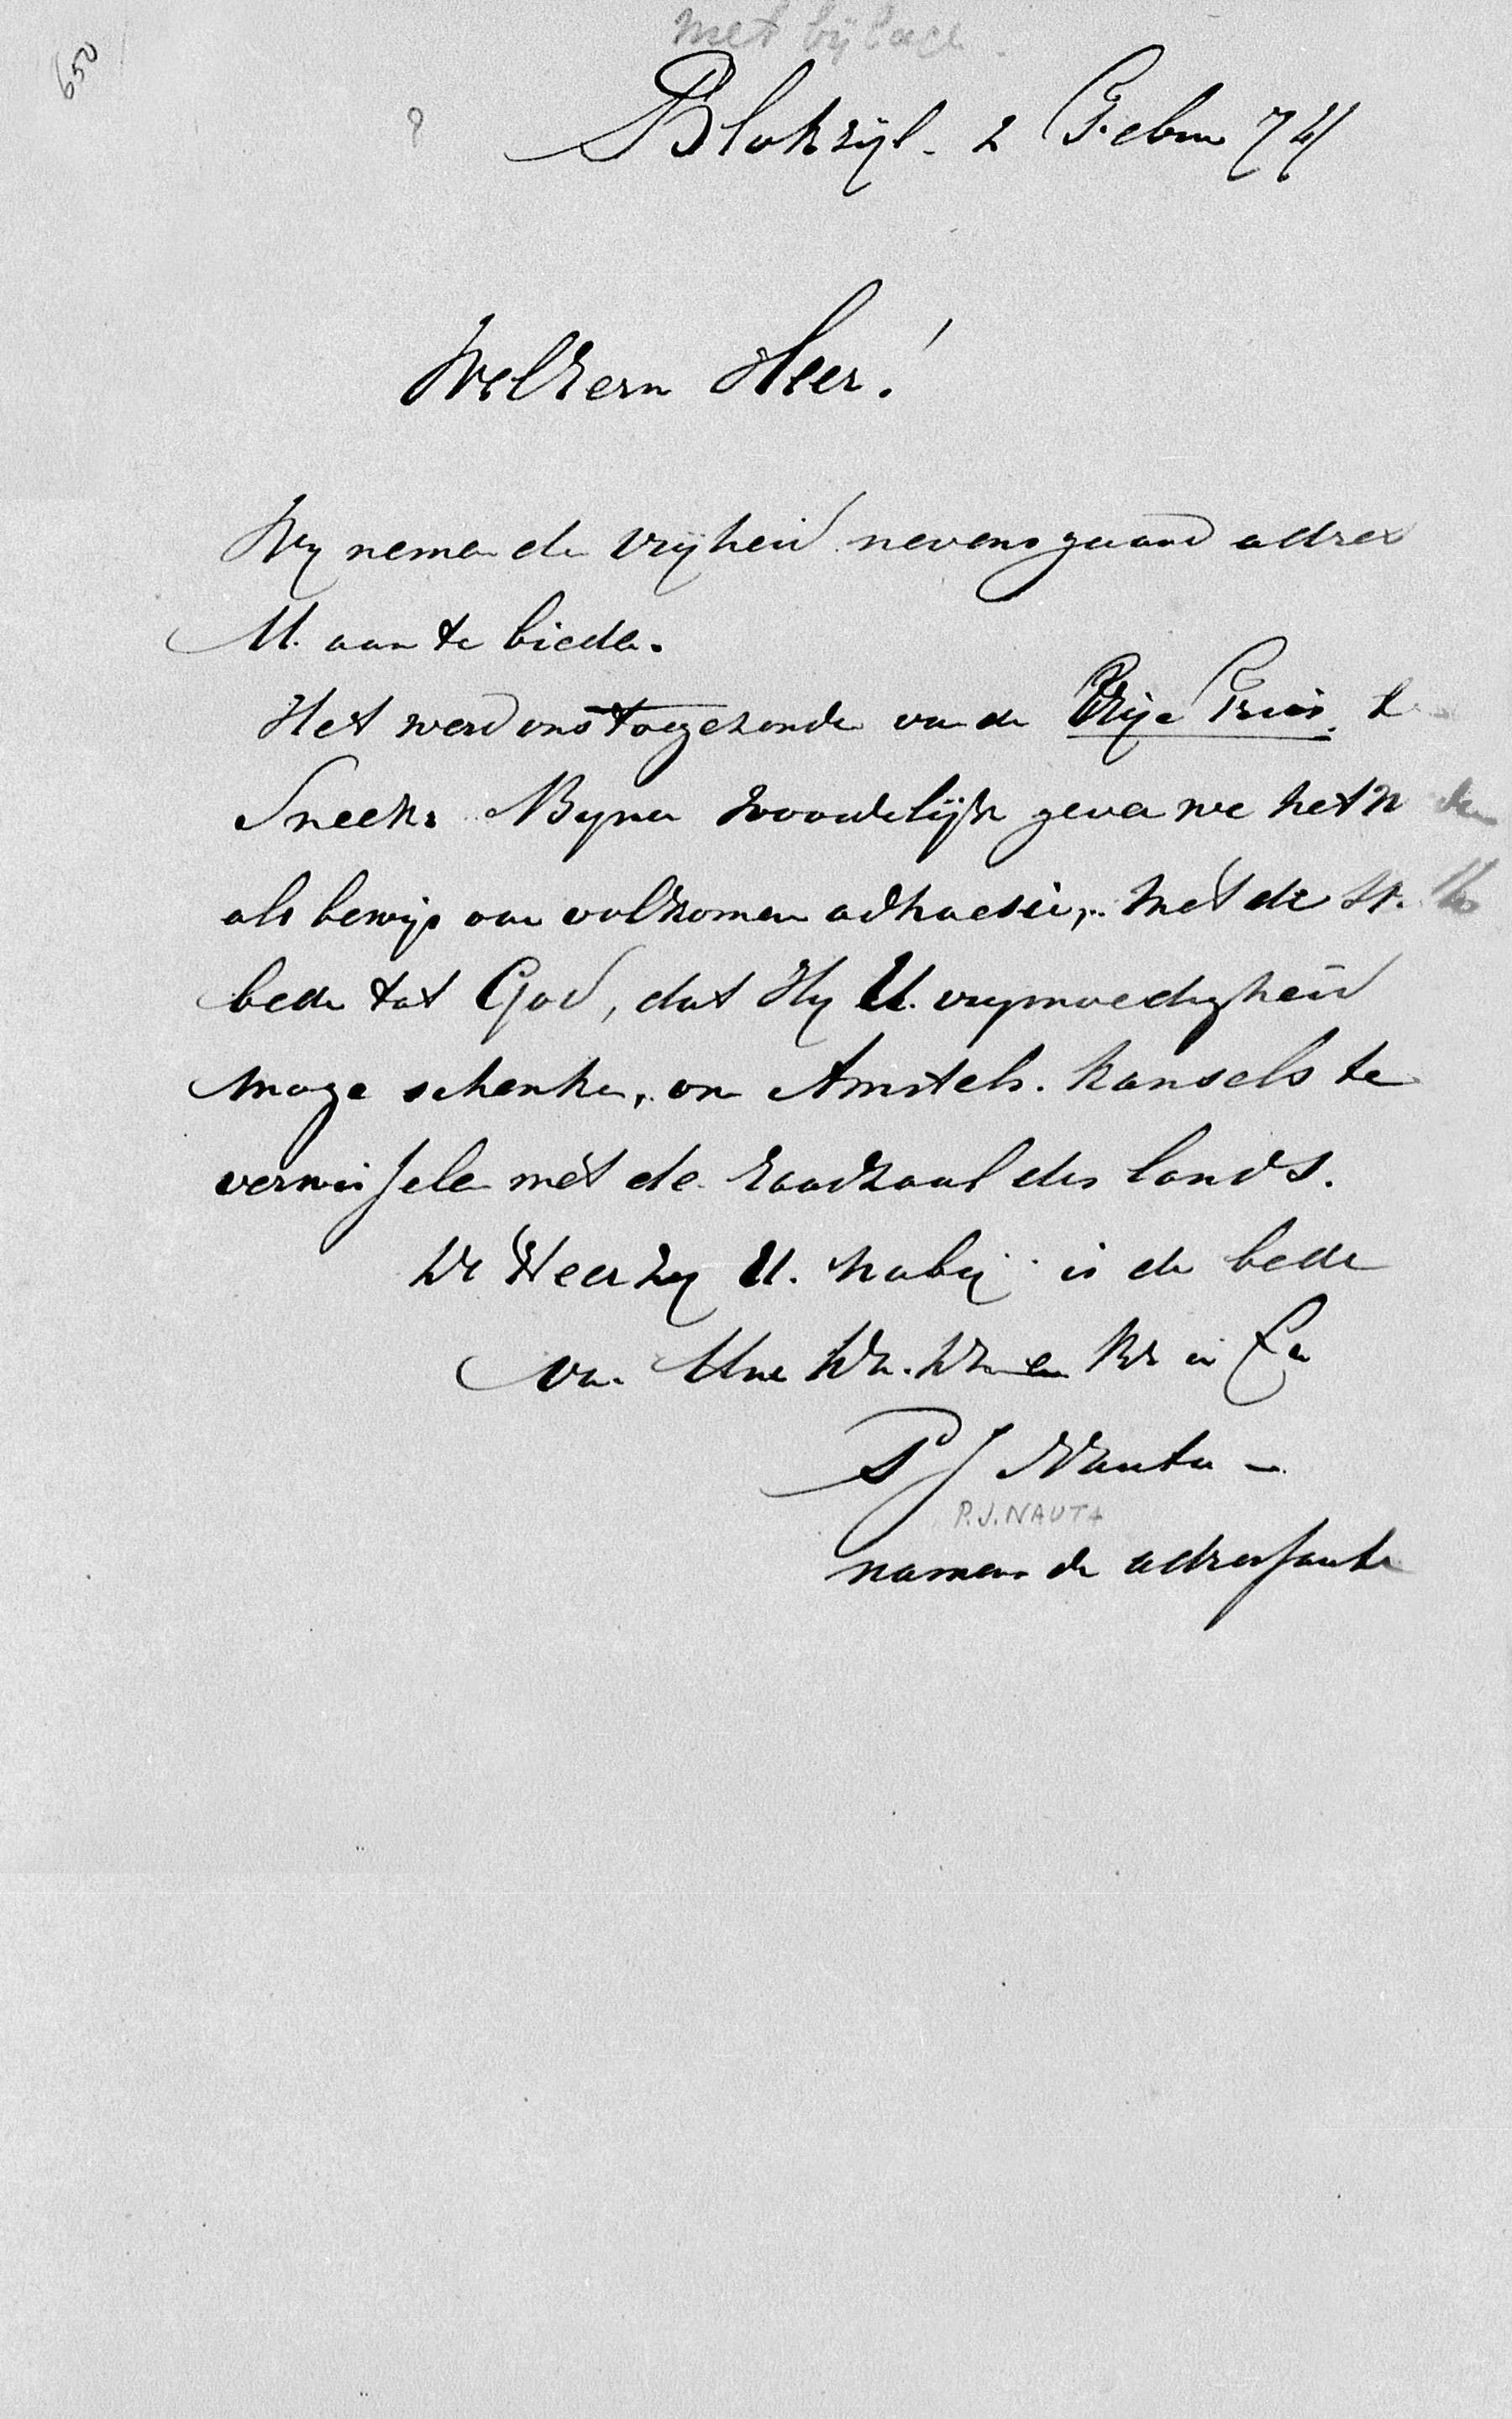 650
met bijlage
Blokzijl. 2 Febru 74
WelEerw Heer!
Wy nemen de vrijheid nevensgaand adres
U. aan te bieden.
Het werd ons toegezonden van de Vrije Fries
Sneek. Byna woordelijk geven we het
als bewijs van volkomen adhaesie, met de
bede tot God, dat Hy U. vrymoedigheid
moge schenken, om Amstels. kansels te
verwisselen met de raadzaal des lands.
De Heer zy U. naby is de bede
van Uwe en Br in
P J Nauta -
P.J. NAUTA
namens de adressanten